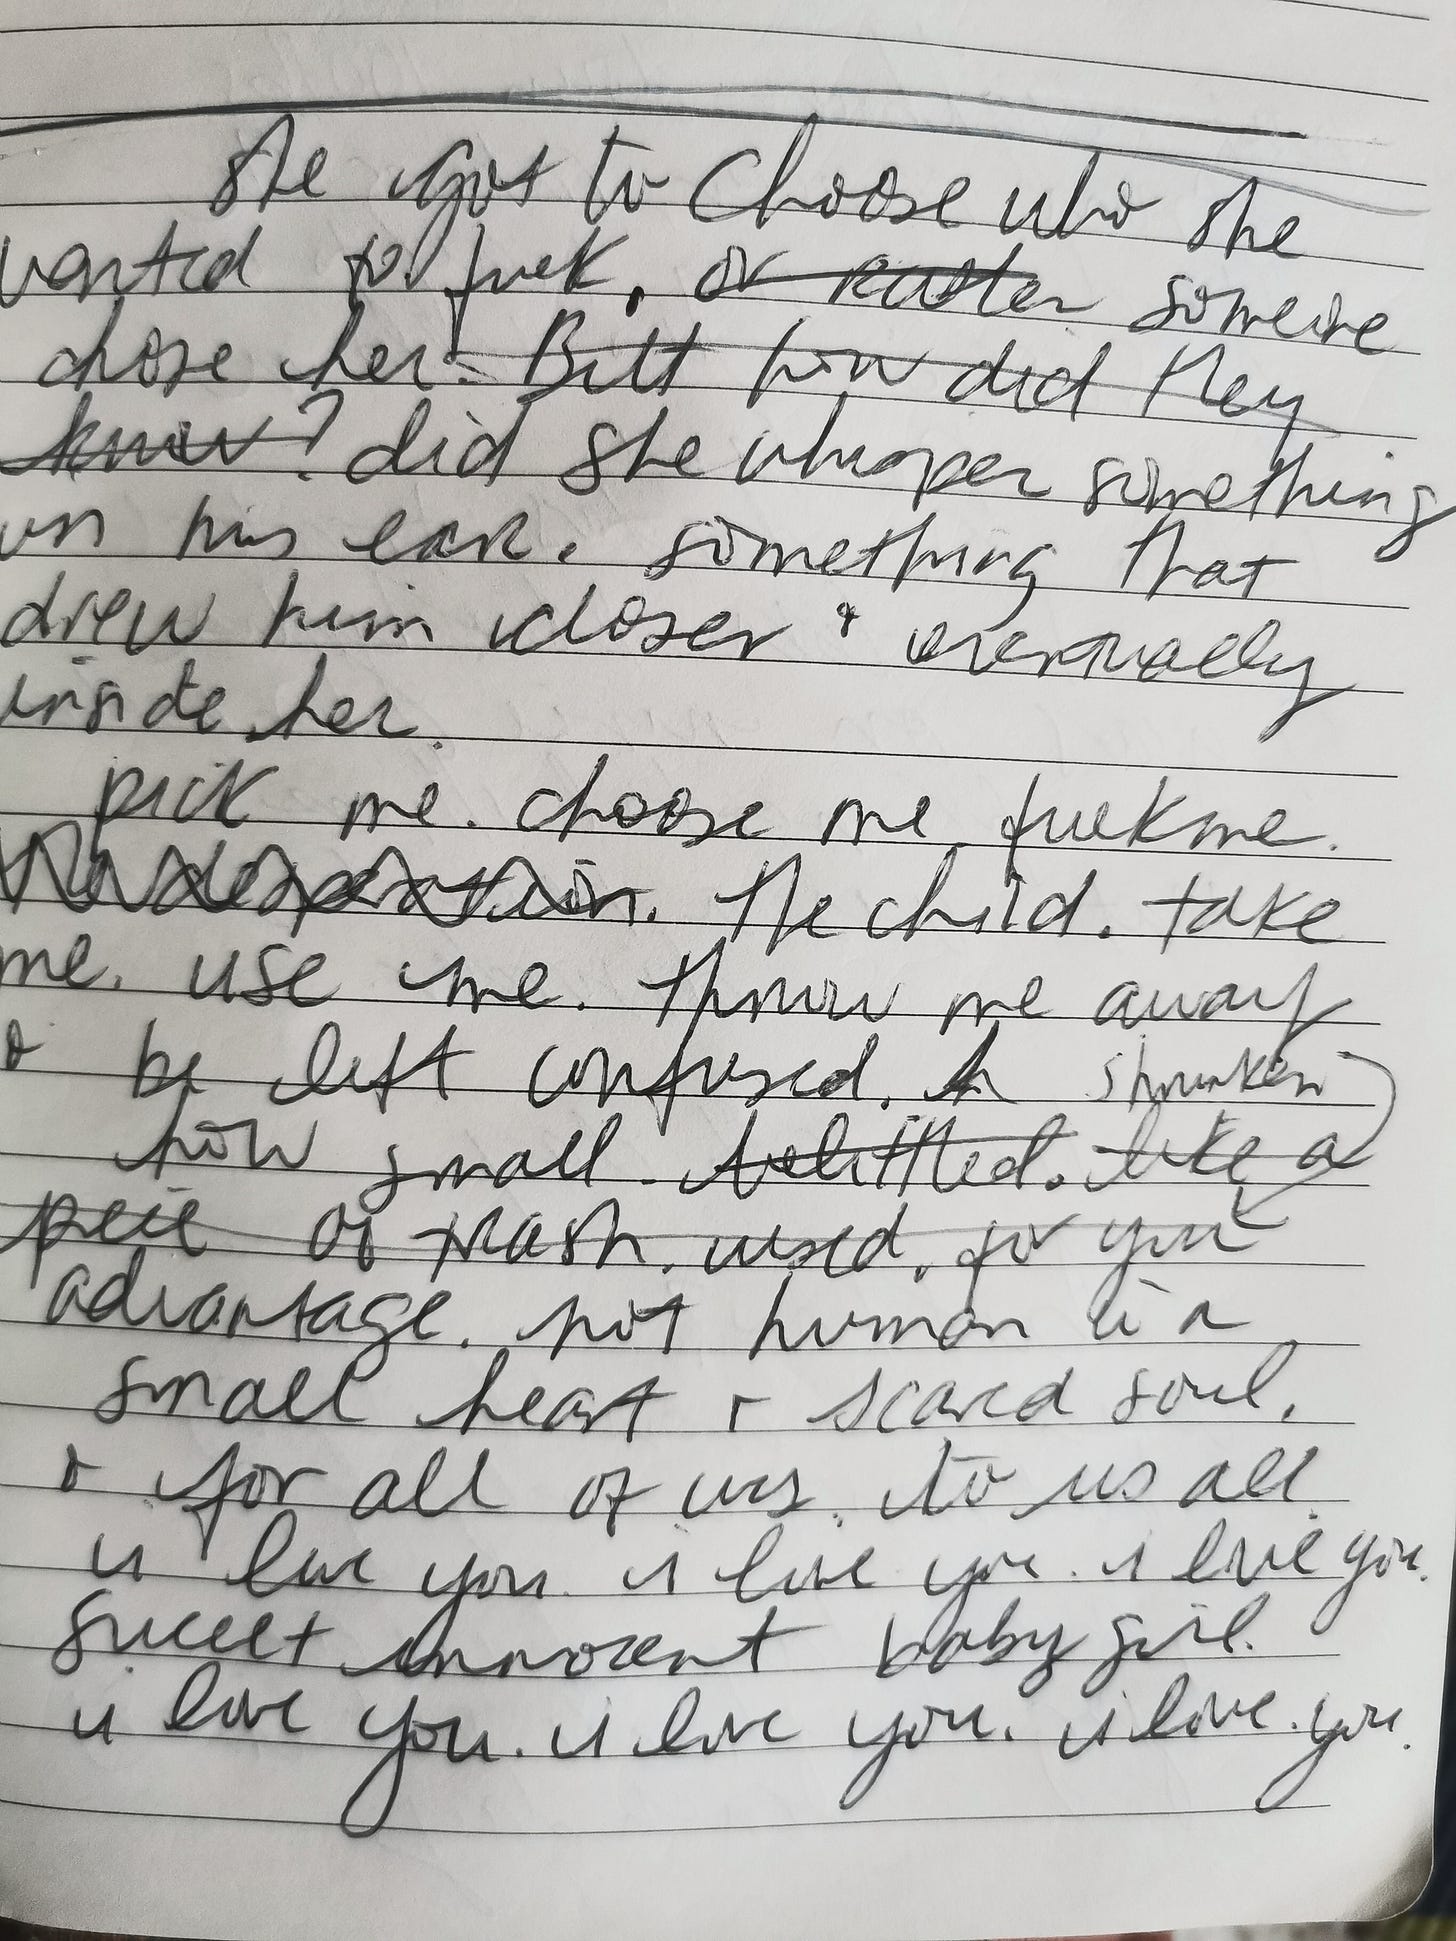 she got to choose who she
wanted to fuck. or rather someone
chose her. But how did they
know? did she whisper something
in his ear. something that
drew him closer & eventually
inside her.
pick me. choose me. fuck me.
desperation. the child. take
me. use me. throw me away
& be left confused. shrunken
how small. belittled. like a
peice of trash. used. for your
advantage. not human
small heart & scared soul.
& for all of us. to us all
i love you. i love you. i love you.
sweet innocent baby girl.
i love you. i love you. i love you.